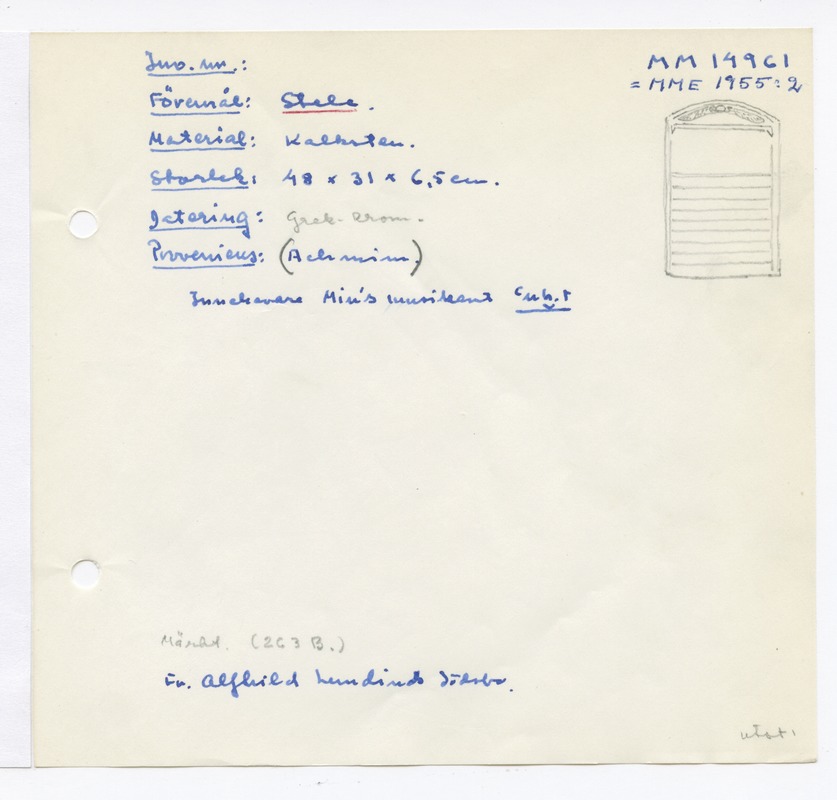 Inv. nr.:
MM 14961
= MME 1955:2
Föremål: Stele.
Material: Kalksten.
Storlek: 48 x 31 x 6,5 cm.
Datering: Grek-rom.
Proveniens: (Achmim)
Innehavare Min's musikant
Märkt. (263 B.)
Fr. Alfhild Lundinds Dödsbo.